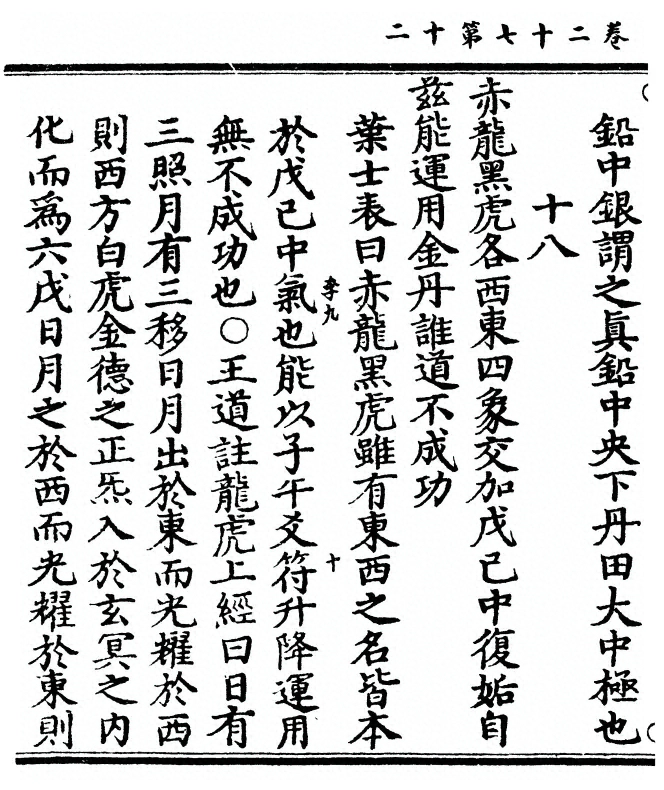 卷二十七第十二
鉛中銀謂之眞鉛中央下丹田大中極也
十八
赤龍黑虎各西東四象交加戊己中復姤自
兹能運用金丹誰道不成功
葉士表曰赤龍黑虎雖有東西之名皆本
李九
於戊己中氣也能以子午爻符升降運用
十
無不成功也○王道註龍虎上經曰日有
三照月有三移日月出於東而光耀於西
則西方白虎金德之正炁入於玄冥之内
化而爲六戊日月之於西而光耀於東則